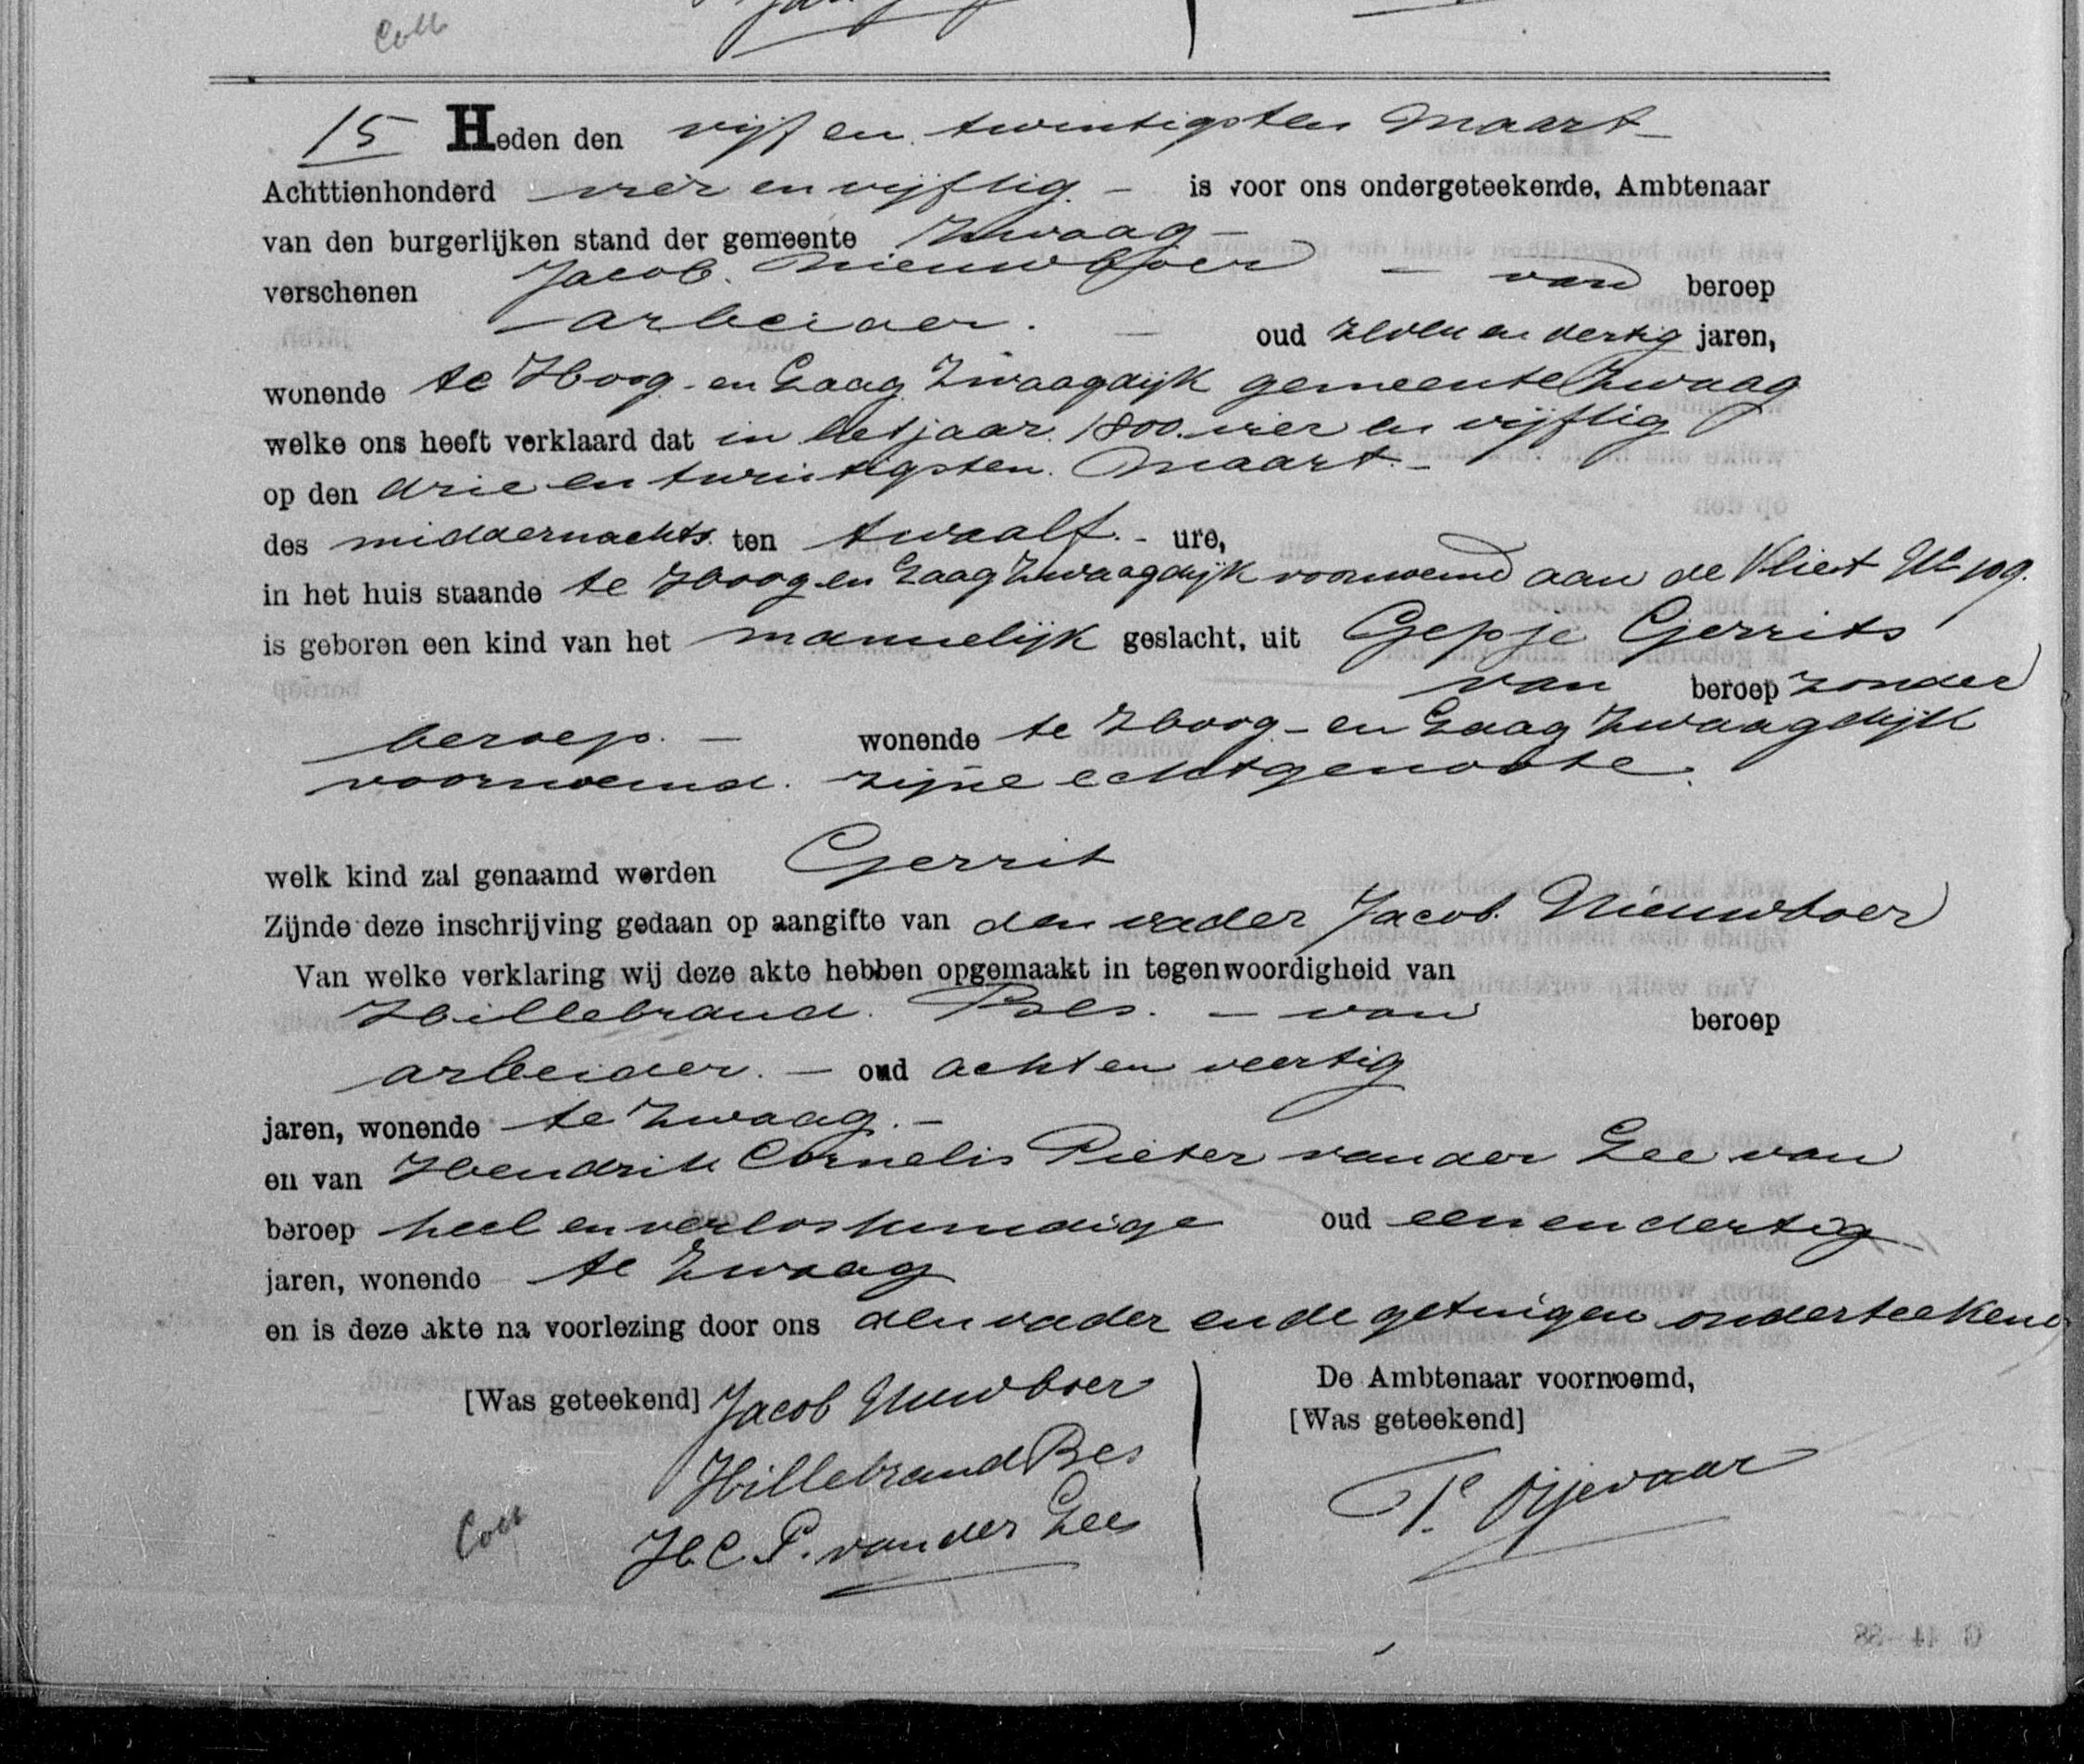 Coll
15 Heden den vijf en twintigsten Maart
Achttienhonderd vier en vijftig. - is voor ons ondergeteekende, Ambtenaar
van den burgerlijken stand der gemeente Zwaag -
verschenen Jacob. Nieuwboer - van beroep
- arbeider. - oud zeven en dertig jaren,
wonende te Hoog- en Laag Zwaagdijk gemeente Zwaag
welke ons heeft verklaard dat in het jaar 1800 vier en vijftig
op den drie en twintigsten Maart. -
des middernachts ten twaalf. - ure,
in het huis staande te Hoog en Laag Zwaagdijk voornoemd aan de Vliet No 109.
is geboren een kind van het mannelijk geslacht, uit Gepje Gerrits
van beroep zonder
beroep. - wonende te Hoog- en Laag Zwaagdijk
voornoemd. zijne echtgenoote.
welk kind zal genaamd worden Gerrit
Zijnde deze inschrijving gedaan op aangifte van den vader Jacob. Nieuwboer
Van welke verklaring wij deze akte hebben opgemaakt in tegenwoordigheid van
Hillebrand. Bes. - van beroep
arbeider. - oud acht en veertig
jaren, wonende te Zwaag. -
en van Hendrik Cornelis Pieter van der Lee van
beroep heel en verloskundige oud een en dertig
jaren, wonende te Zwaag
en is deze akte na voorlezing door ons den vader en de getuigen onderteekend
[Was geteekend] Jacob Nieuwboer
Hillebrand Bes
H. C. P. van der Lee
De Ambtenaar voornoemd,
[Was geteekend]
Coll